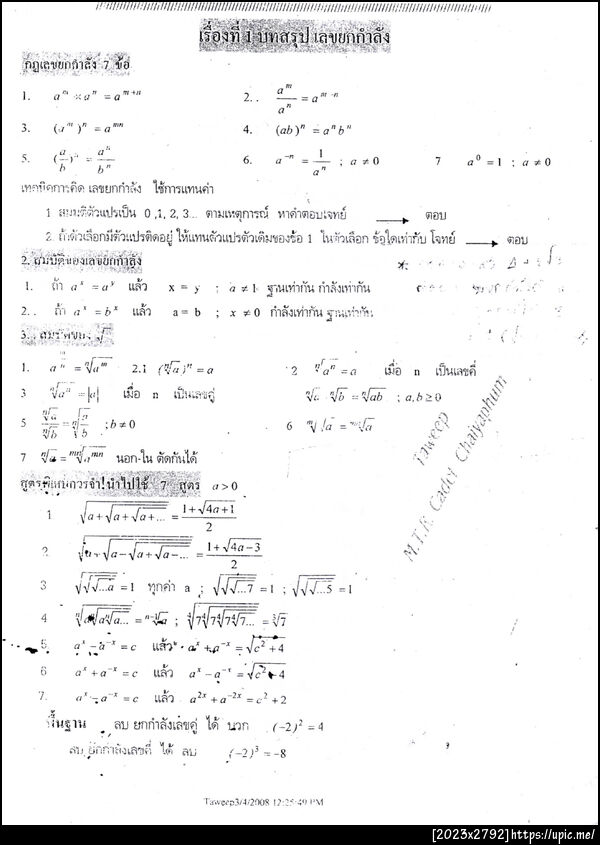 เรื่องที่ 1 บทสรุป เลขยกกำลัง
กฎเลขยกกำลัง 7 ข้อ
1. a^m × a^n = a^{m+n} 2. . a^m/a^n = a^{m-n}
3. (a^m)^n = a^{mn} 4. (ab)^n = a^n b^n
5. (a/b)^n = a^n/b^n 6. a^{-n} = 1/a^n ; a ≠ 0 7 a^0 = 1 ; a ≠ 0
เทคนิคการคิด เลขยกกำลัง ใช้การแทนค่า
1 สมมติตัวแปรเป็น 0 ,1, 2, 3... ตามเหตุการณ์ หาคำตอบโจทย์ → ตอบ
2 ถ้าตัวเลือกมีตัวแปรติดอยู่ ให้แทนตัวแปรตัวเดิมของข้อ 1 ในตัวเลือก ข้อใดเท่ากับ โจทย์ → ตอบ
2. สมบัติของเลขยกกำลัง
1. ถ้า a^x = a^y แล้ว x = y ; a ≠ 1 ฐานเท่ากัน กำลังเท่ากัน
2. . ถ้า a^x = b^x แล้ว a = b ; x ≠ 0 กำลังเท่ากัน ฐานเท่ากัน
3.
1. a^{m/n} = ⁿ√a^m 2.1 (ⁿ√a)^n = a 2 ⁿ√a^n = a เมื่อ n เป็นเลขคี่
3 ⁿ√a^n = |a| เมื่อ n เป็นเลขคู่ ⁿ√a ⁿ√b = ⁿ√ab ; a,b ≥ 0
5 ⁿ√a/ⁿ√b = ⁿ√a/b ; b ≠ 0 6
7 ⁿ√a = ᵐⁿ√a^{mn} นอก-ใน ตัดกันได้
7 สูตร a > 0
1 √(a+√(a+√(a+...))) = (1+√(4a+1))/2
2 √(a-√(a-√(a+√(a-...)))) = (1+√(4a-3))/2
3 √√√...a = 1 ทุกค่า a ; √√√...7 = 1 ; √√√...5 = 1
4 ⁿ√(a ⁿ√(a ⁿ√(a...))) = ⁿ⁻¹√a ; ⁴√(7 ⁴√(7 ⁴√(7 ⁴√(7...)))) = ³√7
5. a^x - a^{-x} = c แล้ว a^x + a^{-x} = √(c²+4)
6 a^x + a^{-x} = c แล้ว a^x - a^{-x} = √(c²-4)
7. a^x - a^{-x} = c แล้ว a^{2x} + a^{-2x} = c² + 2
พื้นฐาน ลบ ยกกำลังเลขคู่ ได้ บวก (-2)² = 4
ลบ ยกกำลังเลขคี่ ได้ ลบ (-2)³ = -8
Taweep
M.T.R. Cadet Chaiyaphum
Taweep3/4/2008 12:25:49 PM
[2023x2792]https://upic.me/